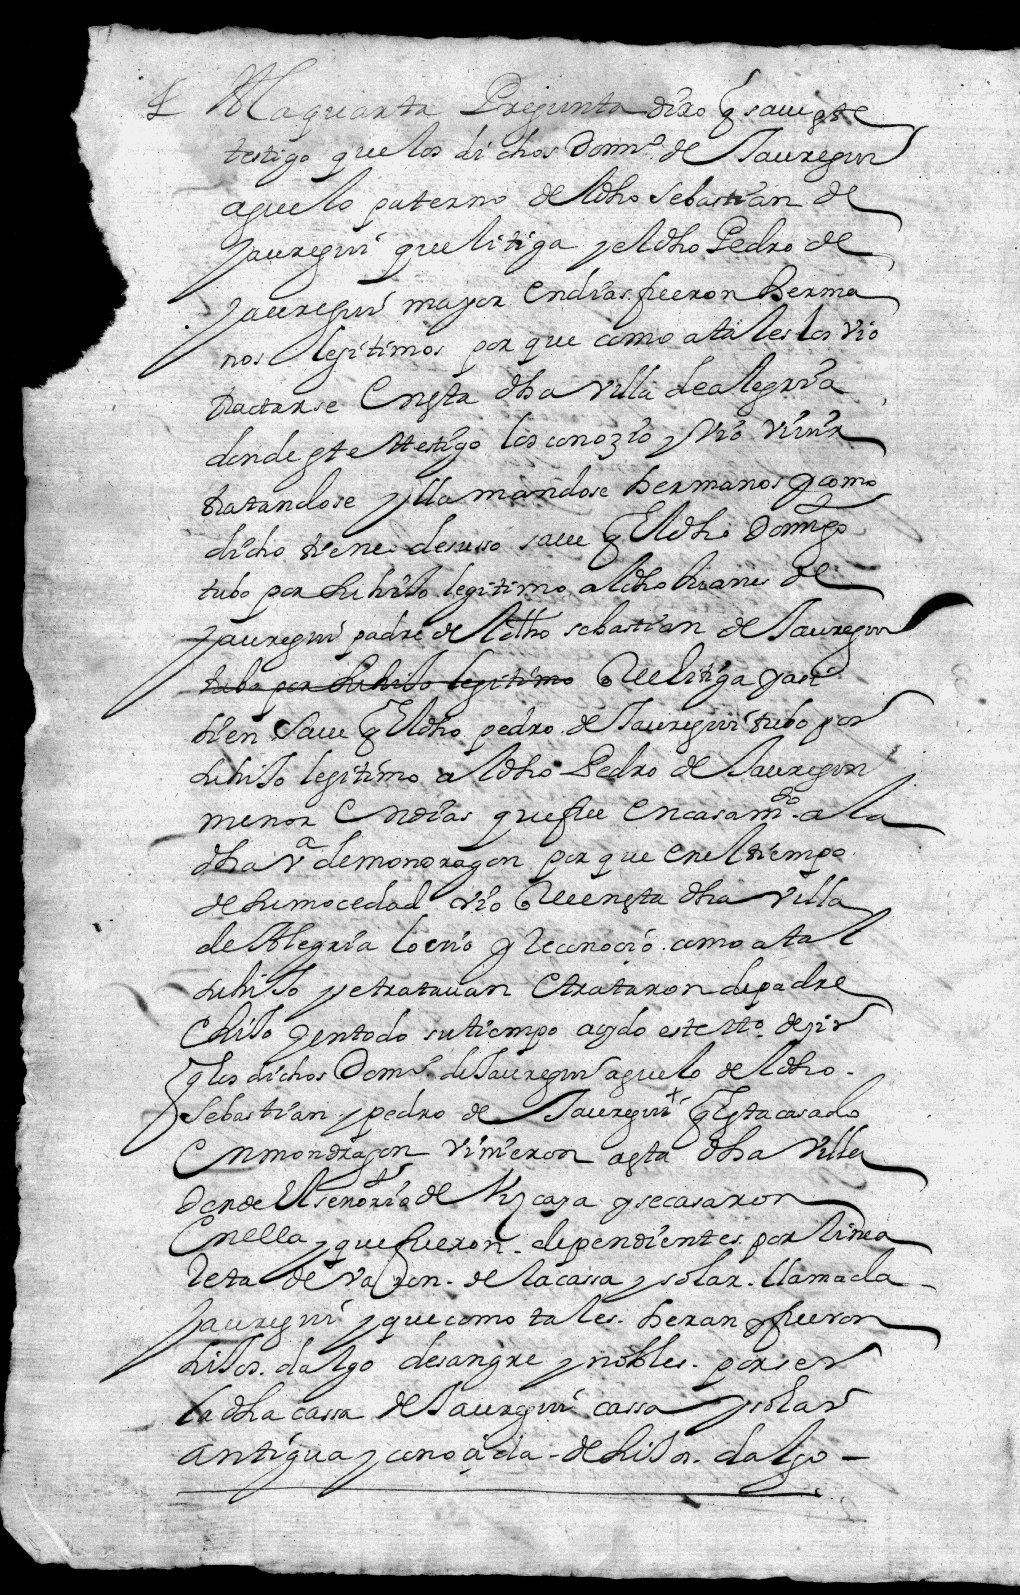 A la quarta Pregunta dixo q saue este
testigo que los dichos Domo. de Jauregui
aguelo paterno del dho Sebastian de
Jauregui que litiga y el dho Pedro de
Jauregui mayor en dias fueron herma
nos legitimos por que como a tales los vio
tractarse en esta dha villa de alegria
donde este testigo los conozio y vio viuir
tratandose y llamandose hermanos y como
dicho tiene desusso saue q el dho Domingo
tubo por su hijo legitimo al dho Juanes de
Jauregui padre del dho sebastian de Jauregui
tubo por su hijo legitimo que litiga y asi
bien saue q el dho pedro de Jauregui tubo por
su hijo legitimo al dho Pedro de Jauregui
menor en dias que fue en casamdo. a la
dha va de mondragon por que en el tiempo
de su mocedad vio que en esta dha villa
de Alegria lo crio y reconoçio como a tal
su hijo y se tratauan e trataron de padre
e hijo y en todo su tiempo a oydo este tto. dezir
q los dichos Domo. de Jauregui aguelo del dho
Sebastian y pedro de Jauregui q esta casado
en mondragon vinieron a esta dha villa
donde el señorio de Vizcaya y se casaron
en ella y que fueron dependientes por linea
reta de varon de la cassa y solar llamada
Jauregui y que como tales heran y fueron
hijos dalgo de sangre y nobles por ser
la dha cassa de Jauregui cassa y solar
antigua y conoçida de hijos dalgo